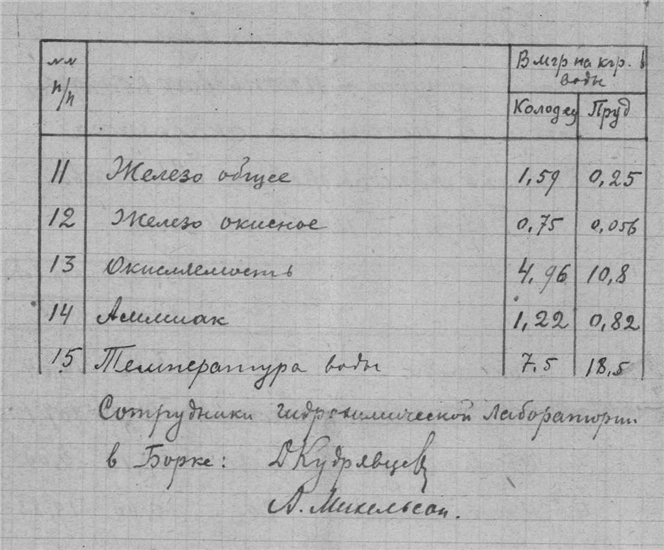 NN В мгр на кгр.
п/п воды
Колодец Пруд
11 Железо общее 1,59 0,25
12 Железо окисное 0,75 0,056
13 Окисляемость 4,96 10,8
14 Аммиак 1,22 0,82
15 Температура воды 7,5 18,5
Сотрудники гидрохимической лаборатории
в Борке: Д Кудрявцев
А. Михельсон.